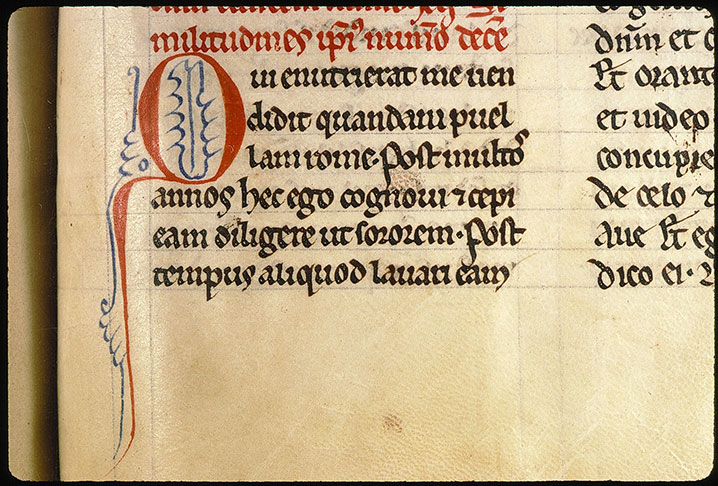 militudines ip̄iꝰ numō decē
Qui enutrierat me uen
didit quandam puel
lam rome· Post multos
annos hec ego cognoui ⁊ cepi
eam diligere ut sororem· Post
tempus aliquod lauari eam
diūm et
Et orant
et uideo
concupie
de celo ⁊
Aue Et eg
dico ei·